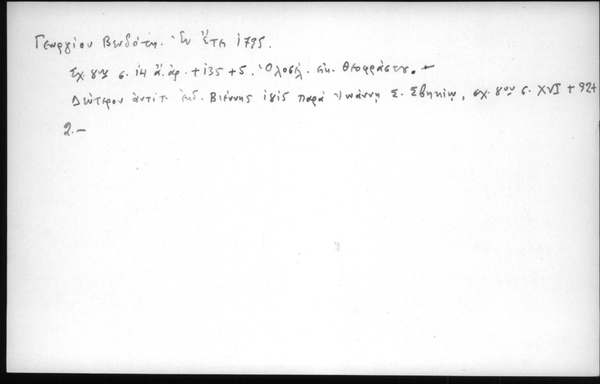 Γεωργίου Βενδότη. Ἐν ἔτη 1795.
Σχ. 8ον σ. 14 ἄ. ἀρ. + 135 + 5. Ὁλοσέλ. εἰκ. Θεοφράστου.
Δεύτερον ἀντίτ. ἐκδ. Βιέννης 1815 παρὰ Ἰωάννῃ Σ. , σχ. 8ον σ. XVI + 924
2.-